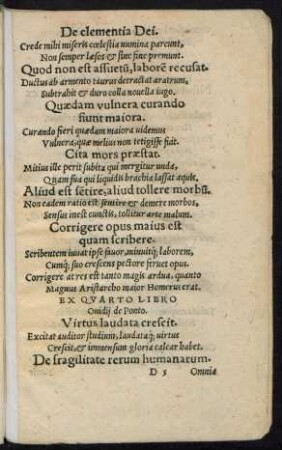 De clementia Dei.
Crede mihi miseris cœlestia numina parcunt,
Non semper læsos & sine fine premunt.
Quod non est assuetũ, laborẽ recusat.
Ductus ab armento taurus detractat aratrum,
Subtrahit & duro colla nouella iugo.
Quædam vulnera curando
fiunt maiora.
Curando fieri quædam maiora uidemus
Vulnera, quæ melius non tetigisse fuit.
Cita mors præstat.
Mitius ille perit subita qui mergitur unda,
Quàm sua qui liquidis brachia lassat aquis.
Aliud est sẽtire, aliud tollere morbũ.
Non eadem ratio est sentire & demere morbos,
Sensus inest cunctis, tollitur arte malum.
Corrigere opus maius est
quam scribere.
Scribentem iuuat ipse fauor, minuitq́; laborem,
Cumq́; suo crescens pectore feruet opus.
Corrigere at res est tanto magis ardua, quanto
Magnus Aristarcho maior Homerus erat.
EX QVARTO LIBRO
Ouidij de Ponto.
Virtus laudata crescit.
Excitat auditor studium, laudataq́; uirtus
Crescit, & immensum gloria calcar habet.
De fragilitate rerum humanarum.
D 5 Omnia